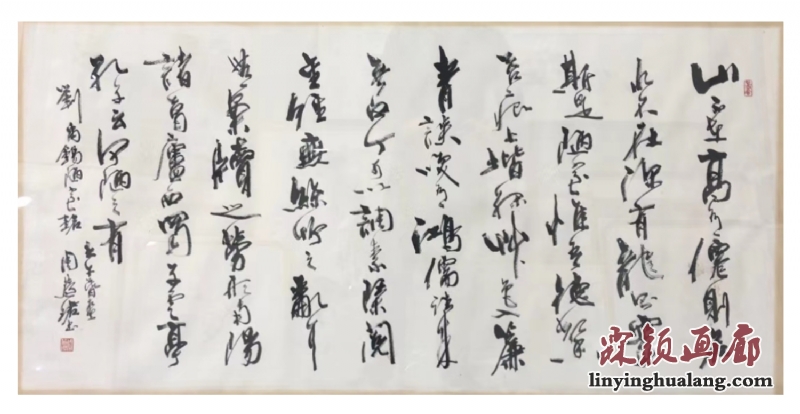 山不在高有僊則名
水不在深有龍則靈
斯是陋室惟吾德馨
苔痕上堦綠艸色入簾
青談笑有鴻儒往來
無白丁可以調素琴閱
金經無絲竹之亂耳
無案牘之勞形南陽
諸葛廬西蜀子雲亭
孔子云何陋之有
劉禹錫陋室銘
周慧珺書
霖颖画廊
linyinghualang.com